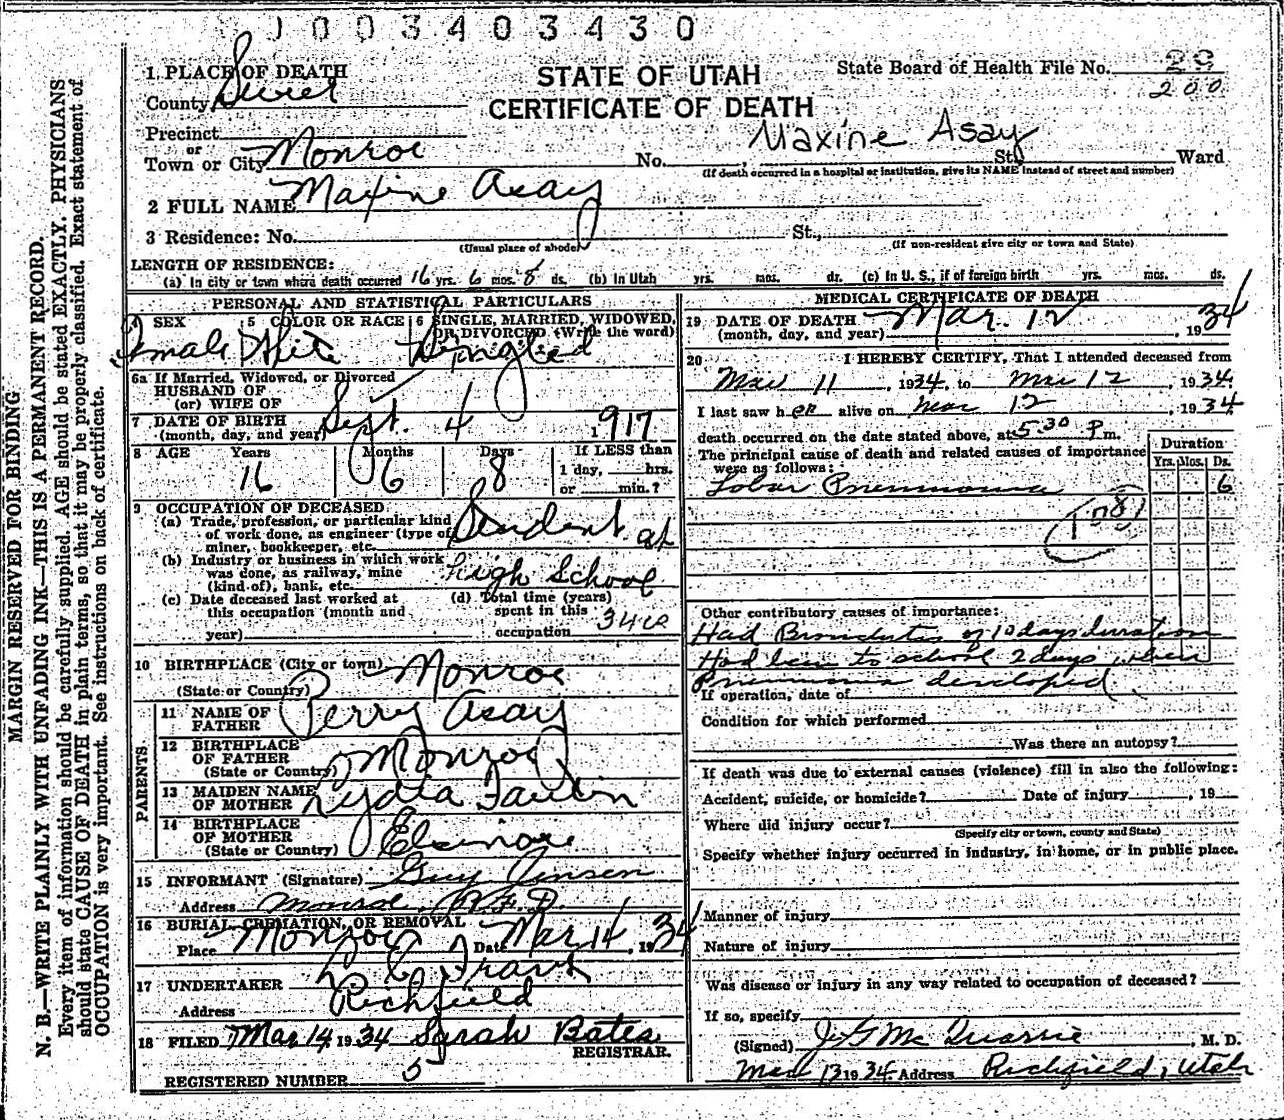 J003403430
STATE OF UTAH
CERTIFICATE OF DEATH
State Board of Health File No. 29
200
1 PLACE OF DEATH
County Sevier
Precinct
or
Town or City Monroe No. , Maxine Asay St., Ward
(If death occurred in a hospital or institution, give its NAME instead of street and number)
2 FULL NAME Maxine Asay
3 Residence: No. St.,
(Usual place of abode) (If non-resident give city or town and State)
LENGTH OF RESIDENCE:
(a) In city or town where death occurred 16 yrs. 6 mos. 8 ds. (b) In Utah yrs. mos. ds. (c) In U. S., if of foreign birth yrs. mos. ds.
PERSONAL AND STATISTICAL PARTICULARS
4 SEX 5 COLOR OR RACE 6 SINGLE, MARRIED, WIDOWED, OR DIVORCED (Write the word)
Female White Single
6a If Married, Widowed, or Divorced
HUSBAND OF
(or) WIFE OF
7 DATE OF BIRTH
(month, day, and year) Sept. 4 1917
8 AGE Years Months Days If LESS than
16 6 8 1 day, hrs.
or min.?
9 OCCUPATION OF DECEASED
(a) Trade, profession, or particular kind
of work done, as engineer (type of
miner, bookkeeper, etc. Student at
(b) Industry or business in which work
was done, as railway, mine
(kind of), bank, etc. High School
(c) Date deceased last worked at
this occupation (month and
year)
(d) Total time (years)
spent in this
occupation
10 BIRTHPLACE (City or town) Monroe
(State or Country)
PARENTS
11 NAME OF
FATHER Perry Asay
12 BIRTHPLACE
OF FATHER
(State or Country) Monroe
13 MAIDEN NAME
OF MOTHER Lydia
14 BIRTHPLACE
OF MOTHER
(State or Country) Elsinore
15 INFORMANT (Signature) Guy Jensen
Address Monroe R.F.D.
16 BURIAL, CREMATION, OR REMOVAL
Place Monroe Date Mar 14, 1934
17 UNDERTAKER
Address Richfield
18 FILED Mar 14 1934 Sarah Bates
REGISTRAR.
REGISTERED NUMBER 5
MEDICAL CERTIFICATE OF DEATH
19 DATE OF DEATH
(month, day, and year) Mar. 12 1934
20 I HEREBY CERTIFY, That I attended deceased from
Mar 11, 1934, to Mar 12, 1934
I last saw her alive on Mar 12, 1934
death occurred on the date stated above, at 5:30 P m.
The principal cause of death and related causes of importance
were as follows:
Duration
Yrs. Mos. Ds.
Lobar Pneumonia 6
108
Other contributory causes of importance:
Had Bronchitis of 10 days duration
Had been to school 2 days when
Pneumonia developed
If operation, date of
Condition for which performed
Was there an autopsy?
If death was due to external causes (violence) fill in also the following:
Accident, suicide, or homicide? Date of injury , 19
Where did injury occur?
(Specify city or town, county and State)
Specify whether injury occurred in industry, in home, or in public place.
Manner of injury
Nature of injury
Was disease or injury in any way related to occupation of deceased?
If so, specify
(Signed) J. G. McQuarrie, M. D.
Mar 13 1934 Address Richfield, Utah
MARGIN RESERVED FOR BINDING
N. B.—WRITE PLAINLY WITH UNFADING INK—THIS IS A PERMANENT RECORD.
Every item of information should be carefully supplied. AGE should be stated EXACTLY. PHYSICIANS
should state CAUSE OF DEATH in plain terms, so that it may be properly classified. Exact statement of
OCCUPATION is very important. See instructions on back of certificate.